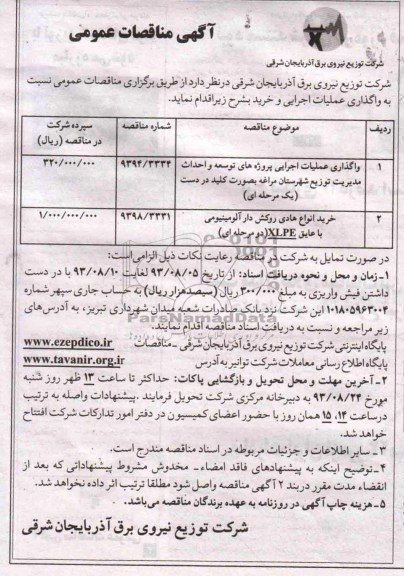 آگهی مناقصات عمومی
شرکت توزیع نیروی برق آذربایجان شرقی
شرکت توزیع نیروی برق آذربایجان شرقی درنظر دارد از طریق برگزاری مناقصات عمومی نسبت
به واگذاری عملیات اجرایی و خرید بشرح زیر اقدام نماید.
ردیف موضوع مناقصه شماره مناقصه سپرده شرکت در مناقصه (ریال)
۱ واگذاری عملیات اجرایی پروژه های توسعه و احداث مدیریت توزیع شهرستان مراغه بصورت کلید در دست (یک مرحله ای) ۹۳۹۴/۳۳۳۴ ۳۲۰/۰۰۰/۰۰۰
۲ خرید انواع هادی روکش دار آلومینیومی با عایق XLPE (دو مرحله ای) ۹۳۹۸/۳۳۳۱ ۱/۰۰۰/۰۰۰/۰۰۰
در صورت تمایل به شرکت در مناقصه رعایت نکات ذیل الزامی است:
۱-زمان و محل و نحوه دریافت اسناد: از تاریخ ۹۳/۰۸/۰۵ لغایت ۹۳/۰۸/۱۰ با در دست
داشتن فیش واریزی به مبلغ ۳۰۰/۰۰۰ ریال (سیصدهزار ریال) به حساب جاری سپهر شماره
۰۱۰۱۸۰۵۹۶۳۰۰۴ این شرکت نزد بانک صادرات شعبه میدان شهرداری تبریز، به آدرس‌های
زیر مراجعه و نسبت به دریافت اسناد مناقصه اقدام نمایند.
پایگاه اینترنتی شرکت توزیع نیروی برق آذربایجان شرقی ـ مناقصات www.ezepdico.ir
پایگاه اطلاع رسانی معاملات شرکت توانیر به آدرس www.tavanir.org.ir
۲-آخرین مهلت و محل تحویل و بازگشایی پاکات: حداکثر تا ساعت ۱۳ ظهر روز شنبه
مورخ ۹۳/۰۸/۲۴ به دبیرخانه مرکزی شرکت تحویل فرمایند. پیشنهادات واصله به ترتیب
در ساعت ۱۴، ۱۵ همان روز با حضور اعضای کمیسیون در دفتر امور تدارکات شرکت افتتاح
خواهد شد.
۳ ـ سایر اطلاعات و جزئیات مربوطه در اسناد مناقصه مندرج است.
۴-توضیح اینکه به پیشنهادهای فاقد امضاء- مخدوش مشروط پیشنهاداتی که بعد از
انقضاء مدت مقرر در بند ۲ آگهی مناقصه واصل شود مطلقا ترتیب اثر داده نخواهد شد.
۵-هزینه چاپ آگهی در روزنامه به عهده برندگان مناقصه می‌باشد.
شرکت توزیع نیروی برق آذربایجان شرقی